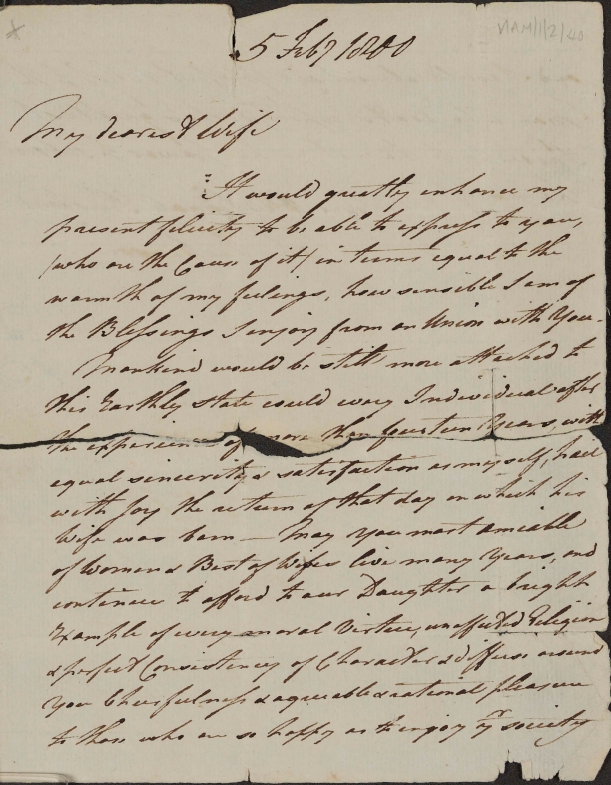 WAM/1/2/40
5 Feby 1800
My dearest Wife
It would greatly enhance my
present felicity to be able to express to you,
(who are the Cause of it) in terms equal to the
warmth of my feelings, how sensible I am of
the Blessings I enjoy from an Union with You.
Mankind would be still more attached to
this Earthly State could every Individual after
the experience of more than fourteen Years, with
equal sincerity & satisfaction as myself, hail
with Joy the return of that day on which his
Wife was born — May you most amiable
of Women & Best of Wifes live many Years, and
continue to afford to our Daughter a bright
Example of every moral Virtue, unaffected Religion
& perfect Consistency of Character & diffuse around
you Chearfulness & agreeable & rational pleasure
to those who are so happy as to enjoy yr society